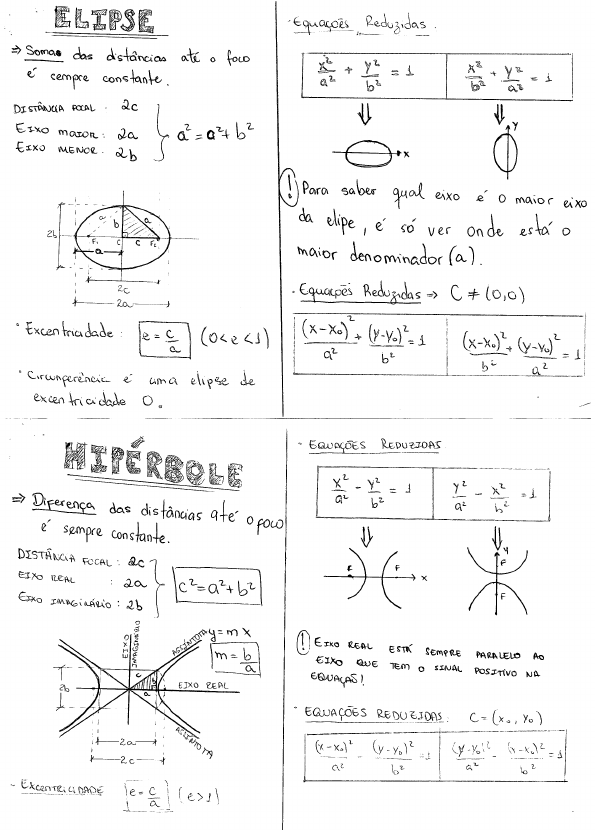 ELIPSE
⇒ Somas das distâncias até o foco
é sempre constante.
DISTÂNCIA FOCAL: 2c
EIXO MAIOR: 2a
EIXO MENOR: 2b
a² = a² + b²
a b a
2b F₁ C c F₂
a
2c
2a
• Excentricidade: e = c/a (0 < e < 1)
• Circunferência é uma elipse de
excentricidade 0.
- Equações Reduzidas.
x²/a² + y²/b² = 1
x²/b² + y²/a² = 1
x
y
! Para saber qual eixo é o maior eixo
da elipe, é só ver onde está o
maior denominador (a).
- Equações Reduzidas ⇒ C ≠ (0,0)
(x-x₀)²/a² + (y-y₀)²/b² = 1
(x-x₀)²/b² + (y-y₀)²/a² = 1
HIPÉRBOLE
⇒ Diferença das distâncias até o foco
é sempre constante.
DISTÂNCIA FOCAL: 2c
EIXO REAL: 2a
EIXO IMAGINÁRIO: 2b
c² = a² + b²
EIXO IMAGINÁRIO
ASSÍNTOTA
y = m x
m = b/a
2b c b a EIXO REAL
ASSÍNTOTA
2a
2c
- EXCENTRICIDADE e = c/a (e > 1)
- EQUAÇÕES REDUZIDAS
x²/a² - y²/b² = 1
y²/a² - x²/b² = 1
F F x
y F F
! EIXO REAL ESTÁ SEMPRE PARALELO AO
EIXO QUE TEM O SINAL POSITIVO NA
EQUAÇÃO!
- EQUAÇÕES REDUZIDAS: C = (x₀, y₀)
(x-x₀)²/a² - (y-y₀)²/b² = 1
(y-y₀)²/a² - (x-x₀)²/b² = 1